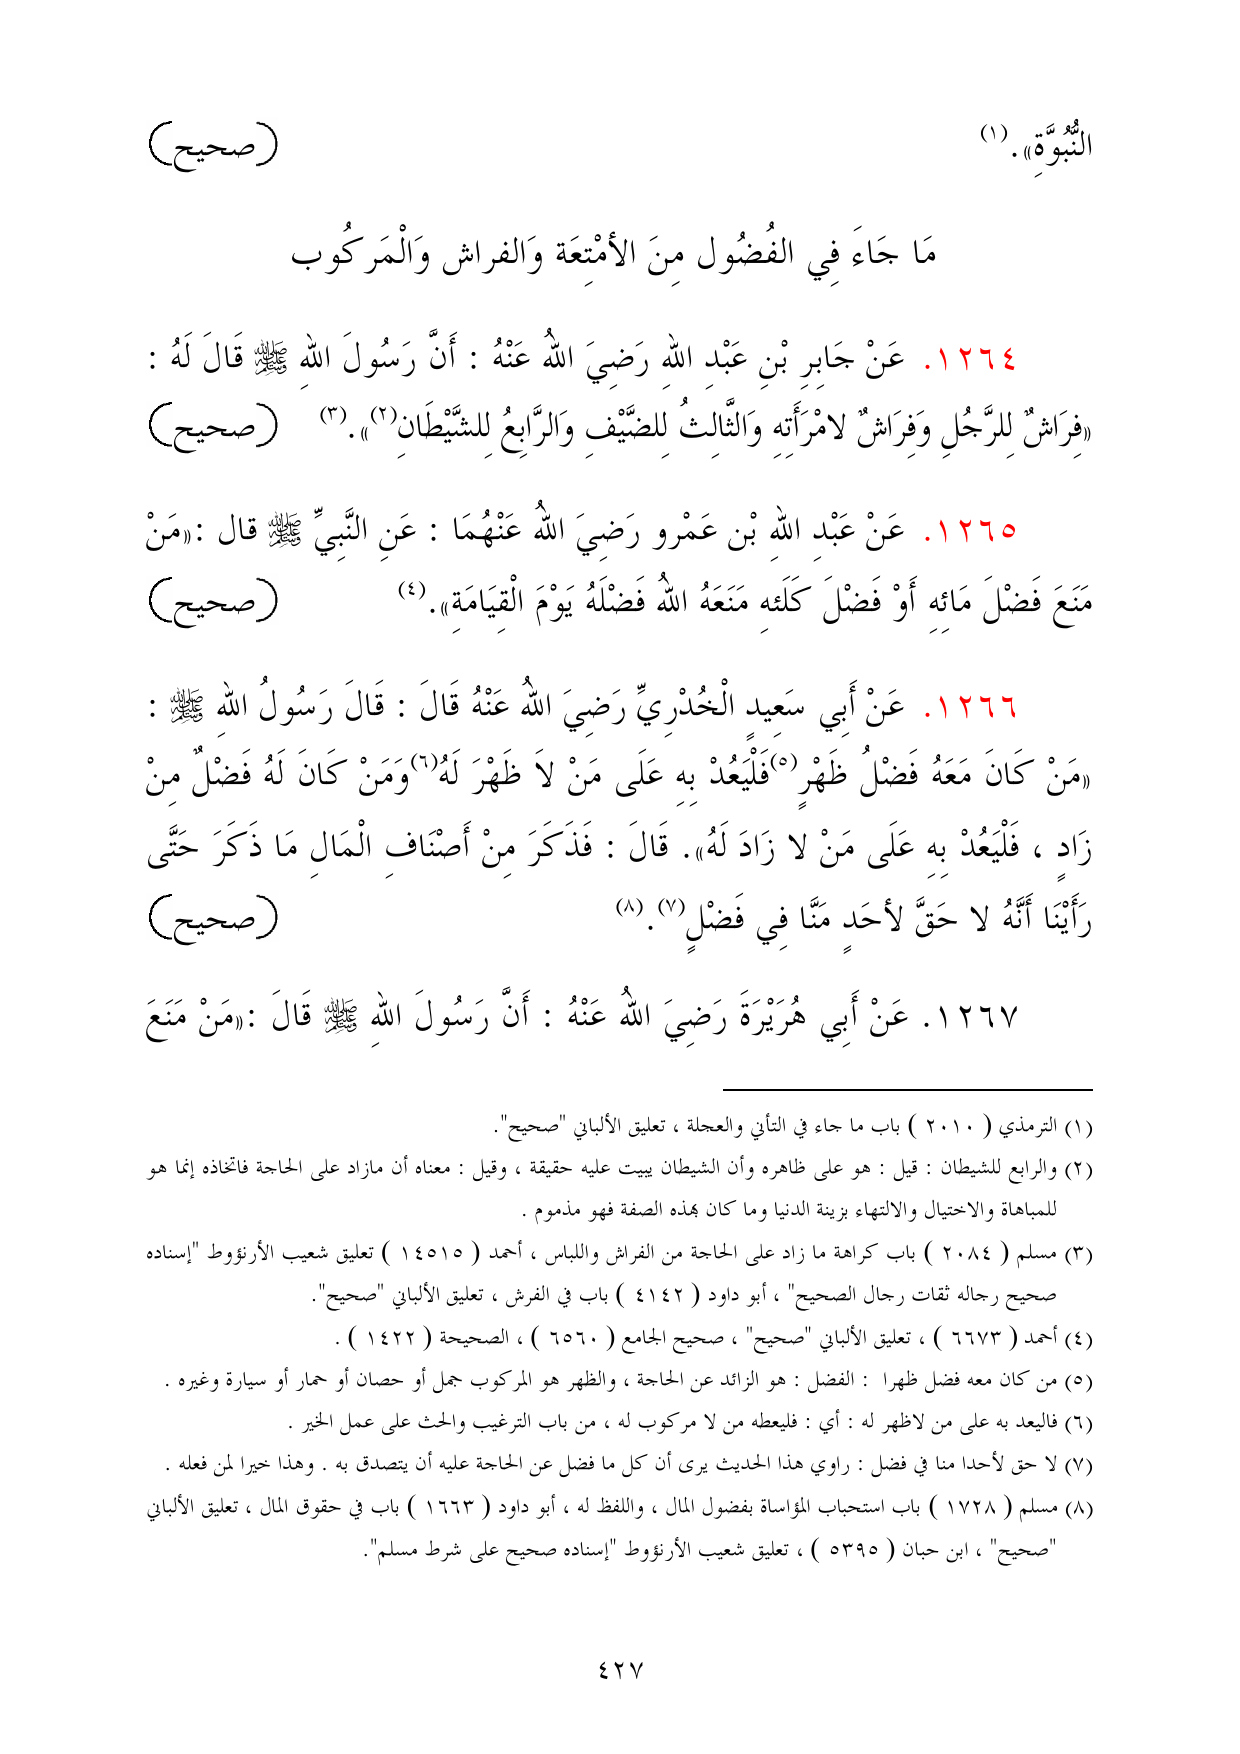 النُّبُوَّةِ». (١) (صحيح)
مَا جَاءَ فِي الفُضُول مِنَ الأمْتِعَة وَالفراش وَالْمَركُوب
١٢٦٤. عَنْ جَابِرِ بْنِ عَبْدِ اللهِ رَضِيَ اللهُ عَنْهُ : أَنَّ رَسُولَ اللهِ ﷺ قَالَ لَهُ :
«فِرَاشٌ لِلرَّجُلِ وَفِرَاشٌ لامْرَأَتِهِ وَالثَّالِثُ لِلضَّيْفِ وَالرَّابِعُ لِلشَّيْطَانِ(٢)».(٣) (صحيح)
١٢٦٥. عَنْ عَبْدِ اللهِ بْن عَمْرو رَضِيَ اللهُ عَنْهُمَا : عَنِ النَّبِيِّ ﷺ قال :«مَنْ
مَنَعَ فَضْلَ مَائِهِ أَوْ فَضْلَ كَلَئهِ مَنَعَهُ اللهُ فَضْلَهُ يَوْمَ الْقِيَامَةِ».(٤) (صحيح)
١٢٦٦. عَنْ أَبِي سَعِيدٍ الْخُدْرِيِّ رَضِيَ اللهُ عَنْهُ قَالَ : قَالَ رَسُولُ اللهِ ﷺ :
«مَنْ كَانَ مَعَهُ فَضْلُ ظَهْرٍ(٥)فَلْيَعُدْ بِهِ عَلَى مَنْ لاَ ظَهْرَ لَهُ(٦)وَمَنْ كَانَ لَهُ فَضْلٌ مِنْ
زَادٍ ، فَلْيَعُدْ بِهِ عَلَى مَنْ لا زَادَ لَهُ». قَالَ : فَذَكَرَ مِنْ أَصْنَافِ الْمَالِ مَا ذَكَرَ حَتَّى
رَأَيْنَا أَنَّهُ لا حَقَّ لأحَدٍ مَنَّا فِي فَضْلٍ(٧).(٨) (صحيح)
١٢٦٧. عَنْ أَبِي هُرَيْرَةَ رَضِيَ اللهُ عَنْهُ : أَنَّ رَسُولَ اللهِ ﷺ قَالَ :«مَنْ مَنَعَ
(١) الترمذي ( ٢٠١٠ ) باب ما جاء في التأني والعجلة ، تعليق الألباني "صحيح".
(٢) والرابع للشيطان : قيل : هو على ظاهره وأن الشيطان يبيت عليه حقيقة ، وقيل : معناه أن مازاد على الحاجة فاتخاذه إنما هو
للمباهاة والاختيال والالتهاء بزينة الدنيا وما كان بهذه الصفة فهو مذموم .
(٣) مسلم ( ٢٠٨٤ ) باب كراهة ما زاد على الحاجة من الفراش واللباس ، أحمد ( ١٤٥١٥ ) تعليق شعيب الأرنؤوط "إسناده
صحيح رجاله ثقات رجال الصحيح" ، أبو داود ( ٤١٤٢ ) باب في الفرش ، تعليق الألباني "صحيح".
(٤) أحمد ( ٦٦٧٣ ) ، تعليق الألباني "صحيح" ، صحيح الجامع ( ٦٥٦٠ ) ، الصحيحة ( ١٤٢٢ ) .
(٥) من كان معه فضل ظهرا : الفضل : هو الزائد عن الحاجة ، والظهر هو المركوب جمل أو حصان أو حمار أو سيارة وغيره .
(٦) فاليعد به على من لاظهر له : أي : فليعطه من لا مركوب له ، من باب الترغيب والحث على عمل الخير .
(٧) لا حق لأحدا منا في فضل : راوي هذا الحديث يرى أن كل ما فضل عن الحاجة عليه أن يتصدق به . وهذا خيرا لمن فعله .
(٨) مسلم ( ١٧٢٨ ) باب استحباب المؤاساة بفضول المال ، واللفظ له ، أبو داود ( ١٦٦٣ ) باب في حقوق المال ، تعليق الألباني
"صحيح" ، ابن حبان ( ٥٣٩٥ ) ، تعليق شعيب الأرنؤوط "إسناده صحيح على شرط مسلم".
٤٢٧